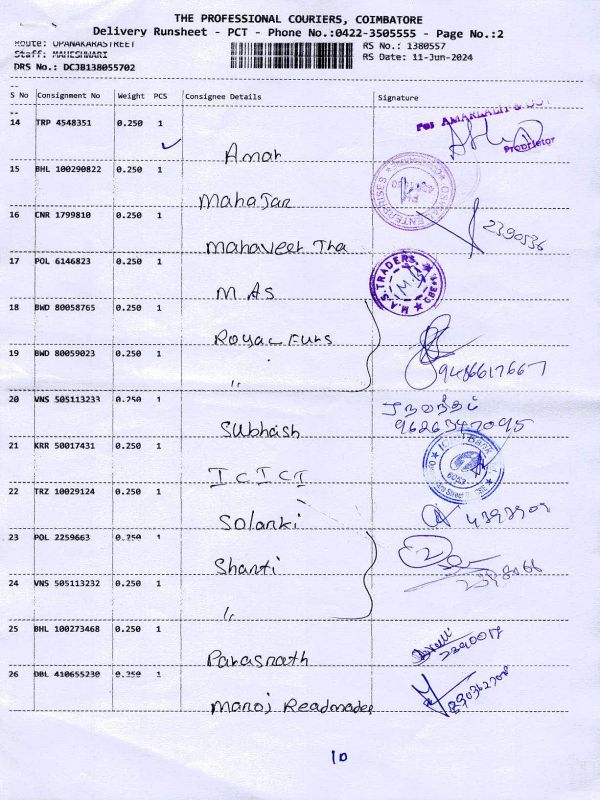 THE PROFESSIONAL COURIERS, COIMBATORE
Delivery Runsheet - PCT - Phone No.:0422-3505555 - Page No.:2
Route: UPANAKARASTREET
RS No.: 1380557
Staff: MAHESHWARI
RS Date: 11-Jun-2024
DRS No.: DCJB138055702
S No Consignment No Weight PCS Consignee Details Signature
14 TRP 4548351 0.250 1
Proprietor
Amar
15 BHL 100290822 0.250 1
Mahajar
16 CNR 1799810 0.250 1
2390536
Mahaveer Tha
17 POL 6146823 0.250 1
M.A.S. TRADERS
CBE
MAS
18 BWD 80058765 0.250 1
Royal Furs
19 BWD 80059023 0.250 1
9486617667
"
20 VNS 505113233 0.250 1
9626347095
Subhash
21 KRR 50017431 0.250 1
Bank
6053
ICICI
22 TRZ 10029124 0.250 1
Solanki
23 POL 2259663 0.250 1
Shanti
24 VNS 505113232 0.250 1
"
25 BHL 100273468 0.250 1
2390017
Parasnath
26 DBL 410655230 0.250 1
Manoj Readmades
10